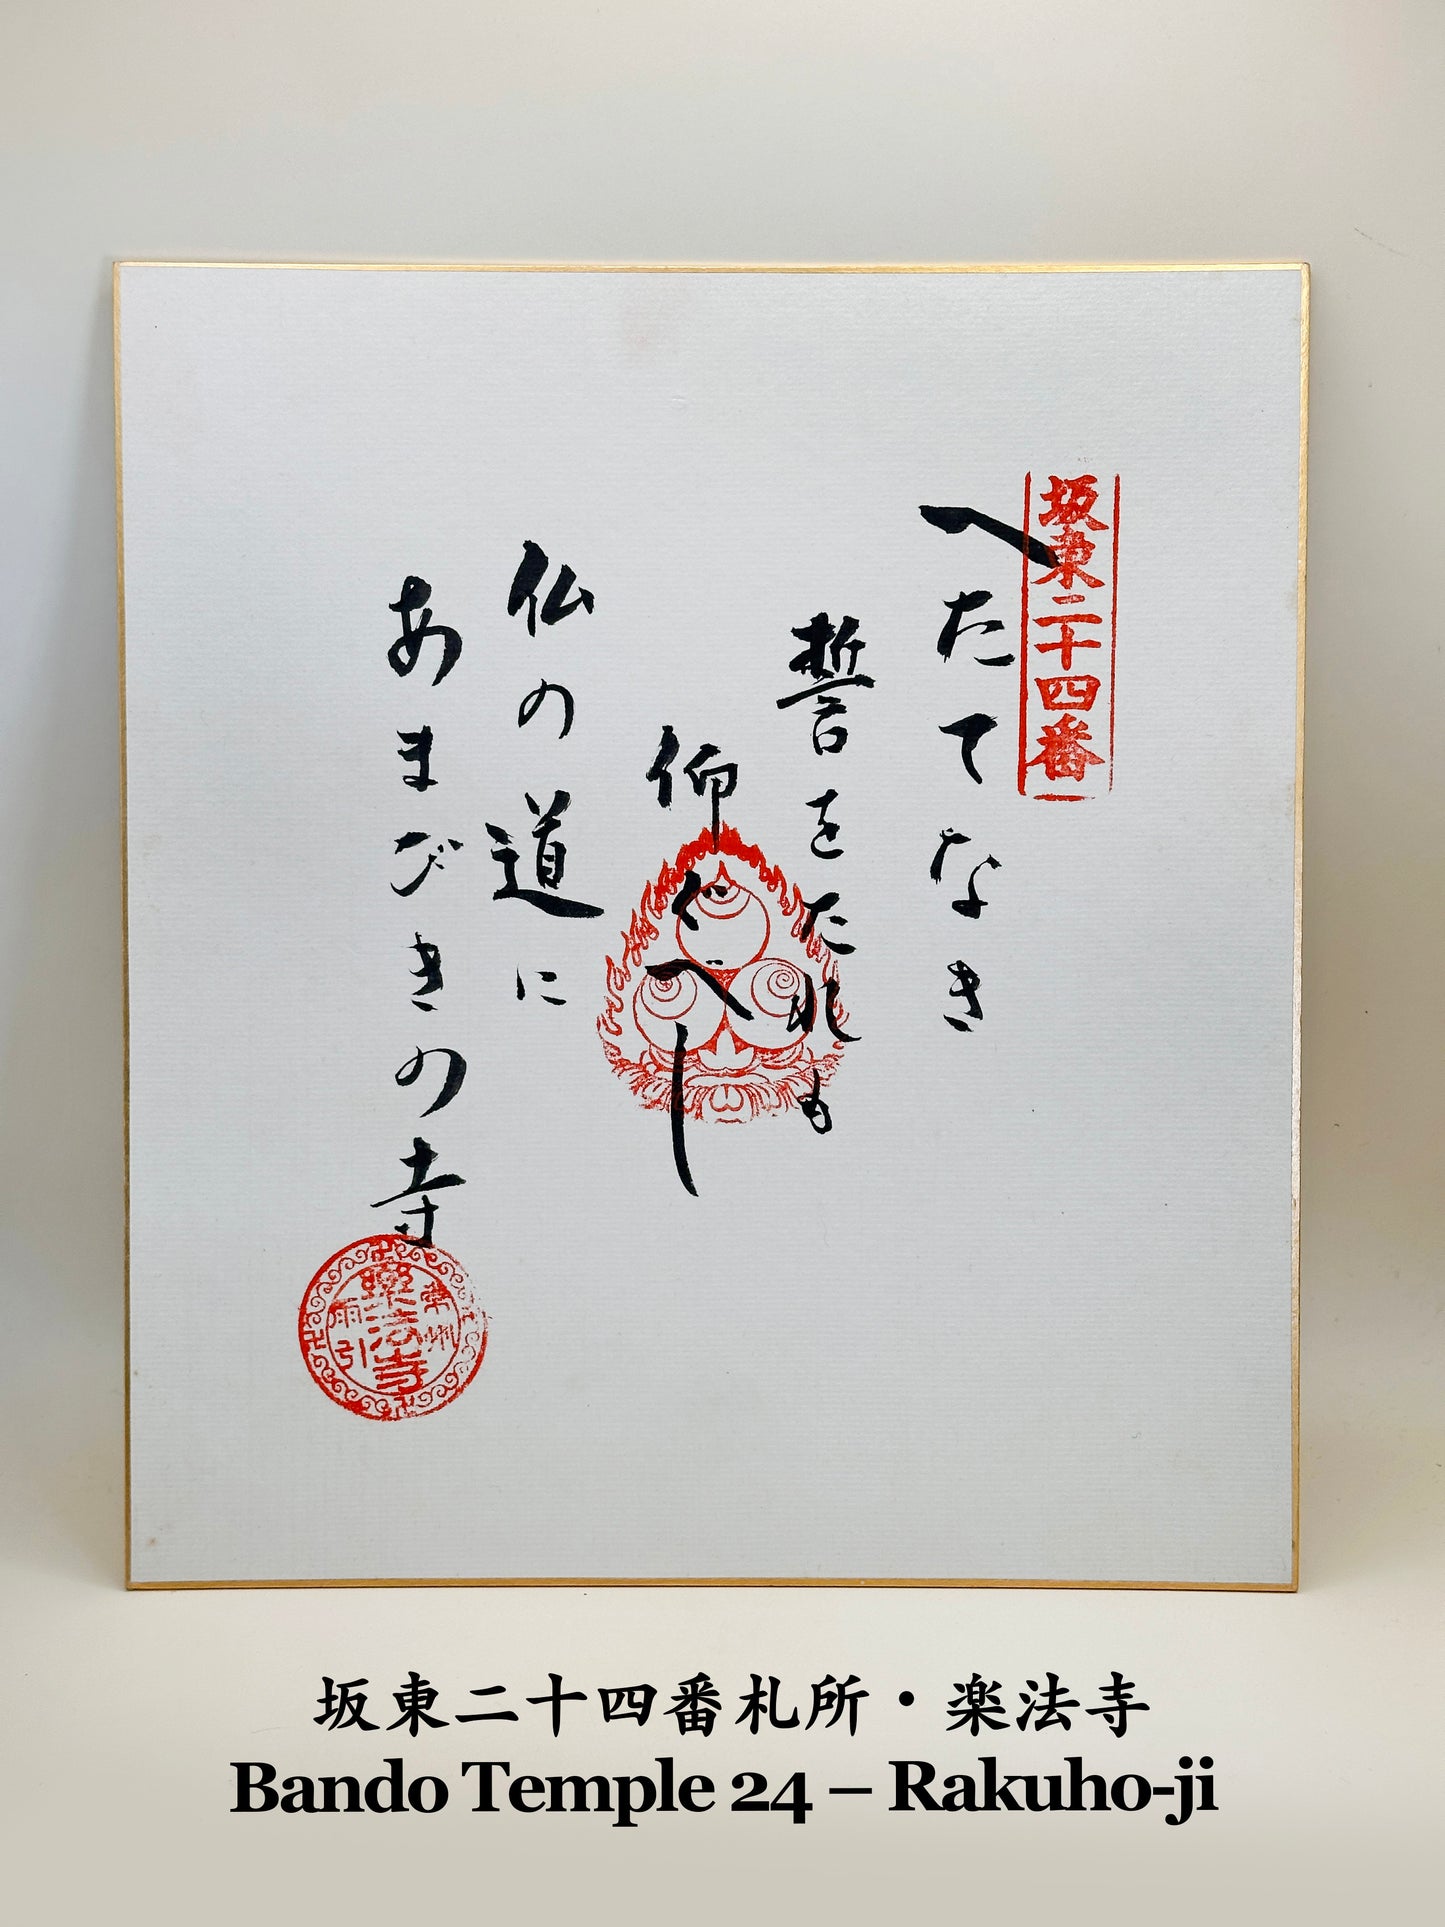 坂東二十四番
へたてなき
誓をたれも
仰ぐべし
仏の道に
あまびきの寺
常州
樂法寺
雨引
坂東二十四番札所・楽法寺
Bando Temple 24 – Rakuho-ji